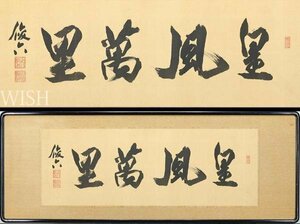 皇風萬里
俊六
WISH
皇風萬里
俊六